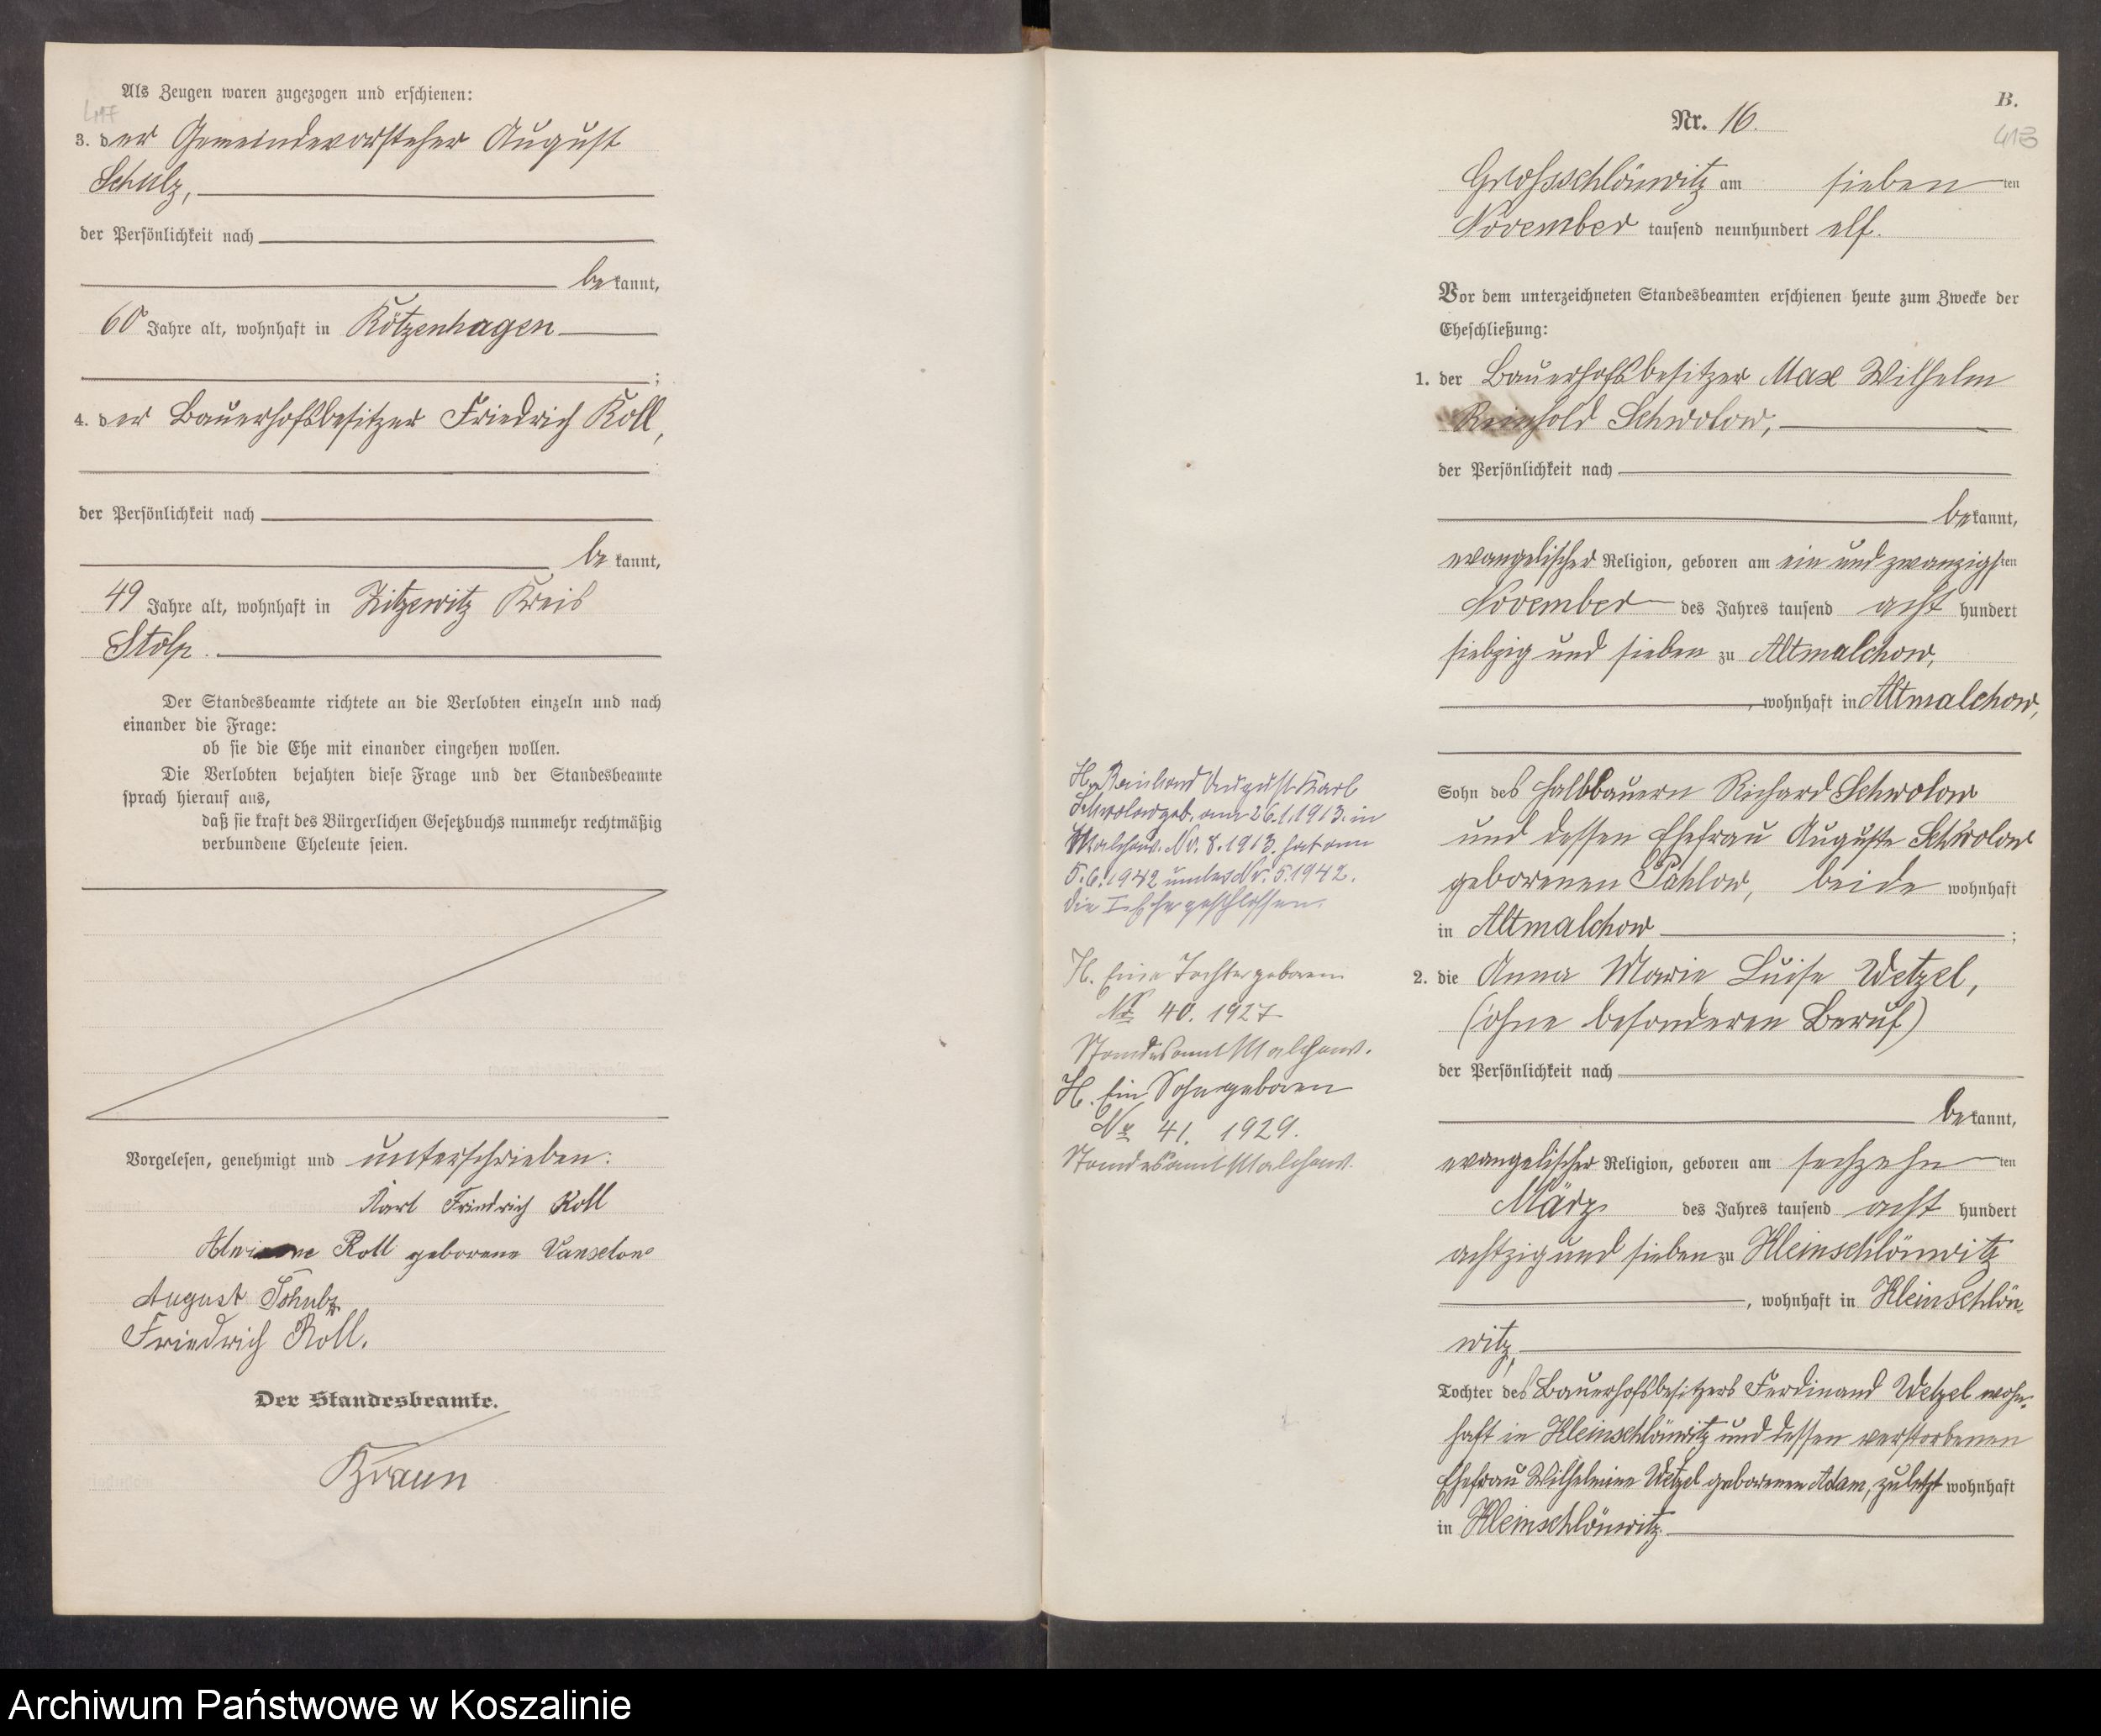 Als Zeugen waren zugezogen und erschienen:
417
3. der Gemeindevorsteher August
Schulz,
der Persönlichkeit nach
bekannt,
60 Jahre alt, wohnhaft in Kötzenhagen
;
4. der Bauerhofsbesitzer Friedrich Koll,
der Persönlichkeit nach
bekannt,
49 Jahre alt, wohnhaft in Zitzewitz Kreis
Stolp.
Der Standesbeamte richtete an die Verlobten einzeln und nach
einander die Frage:
ob sie die Ehe mit einander eingehen wollen.
Die Verlobten bejahten diese Frage und der Standesbeamte
sprach hierauf aus,
daß sie kraft des Bürgerlichen Gesetzbuchs nunmehr rechtmäßig
verbundene Eheleute seien.
Vorgelesen, genehmigt und unterschrieben:
Karl Friedrich Koll
Koll geborene Vanselow
August Schulz
Friedrich Koll.
Der Standesbeamte.
Braun
B.
Nr. 16.
413
Grossschlönwitz am sieben ten
November tausend neunhundert elf.
Vor dem unterzeichneten Standesbeamten erschienen heute zum Zwecke der
Eheschließung:
1. der Bauerhofsbesitzer Max Wilhelm
Reinhold Schwolow,
der Persönlichkeit nach
bekannt,
evangelischer Religion, geboren am ein und zwanzigsten
November des Jahres tausend acht hundert
siebzig und sieben zu Altmalchow,
, wohnhaft in Altmalchow,
Sohn des Halbbauern Richard Schwolow
und dessen Ehefrau Auguste Schwolow
geborenen Pahlow, beide wohnhaft
in Altmalchow ;
2. die Anna Marie Luise Wetzel,
(ohne besonderen Beruf)
der Persönlichkeit nach
bekannt,
evangelischer Religion, geboren am sechzehn ten
März des Jahres tausend acht hundert
achtzig und sieben zu Kleinschlönwitz
, wohnhaft in Kleinschlön-
witz,
Tochter des Bauerhofsbesitzers Ferdinand Wetzel wohn-
haft in Kleinschlönwitz und dessen verstorbenen
Ehefrau Wilhelmine Wetzel geborenen Adam, zuletzt wohnhaft
in Kleinschlönwitz.
H. August Karl
Schwolow geb. am 26.1.1913. in
Malchow. Nr. 8. 1913. hat am
5.6.1942 unter Nr. 5.1942.
die I. Ehe geschlossen.
H. Eine Tochter geboren
Nr 40. 1927
Standesamt Malchow.
H. Ein Sohn geboren
Nr 41. 1929.
Standesamt Malchow.
Archiwum Państwowe w Koszalinie